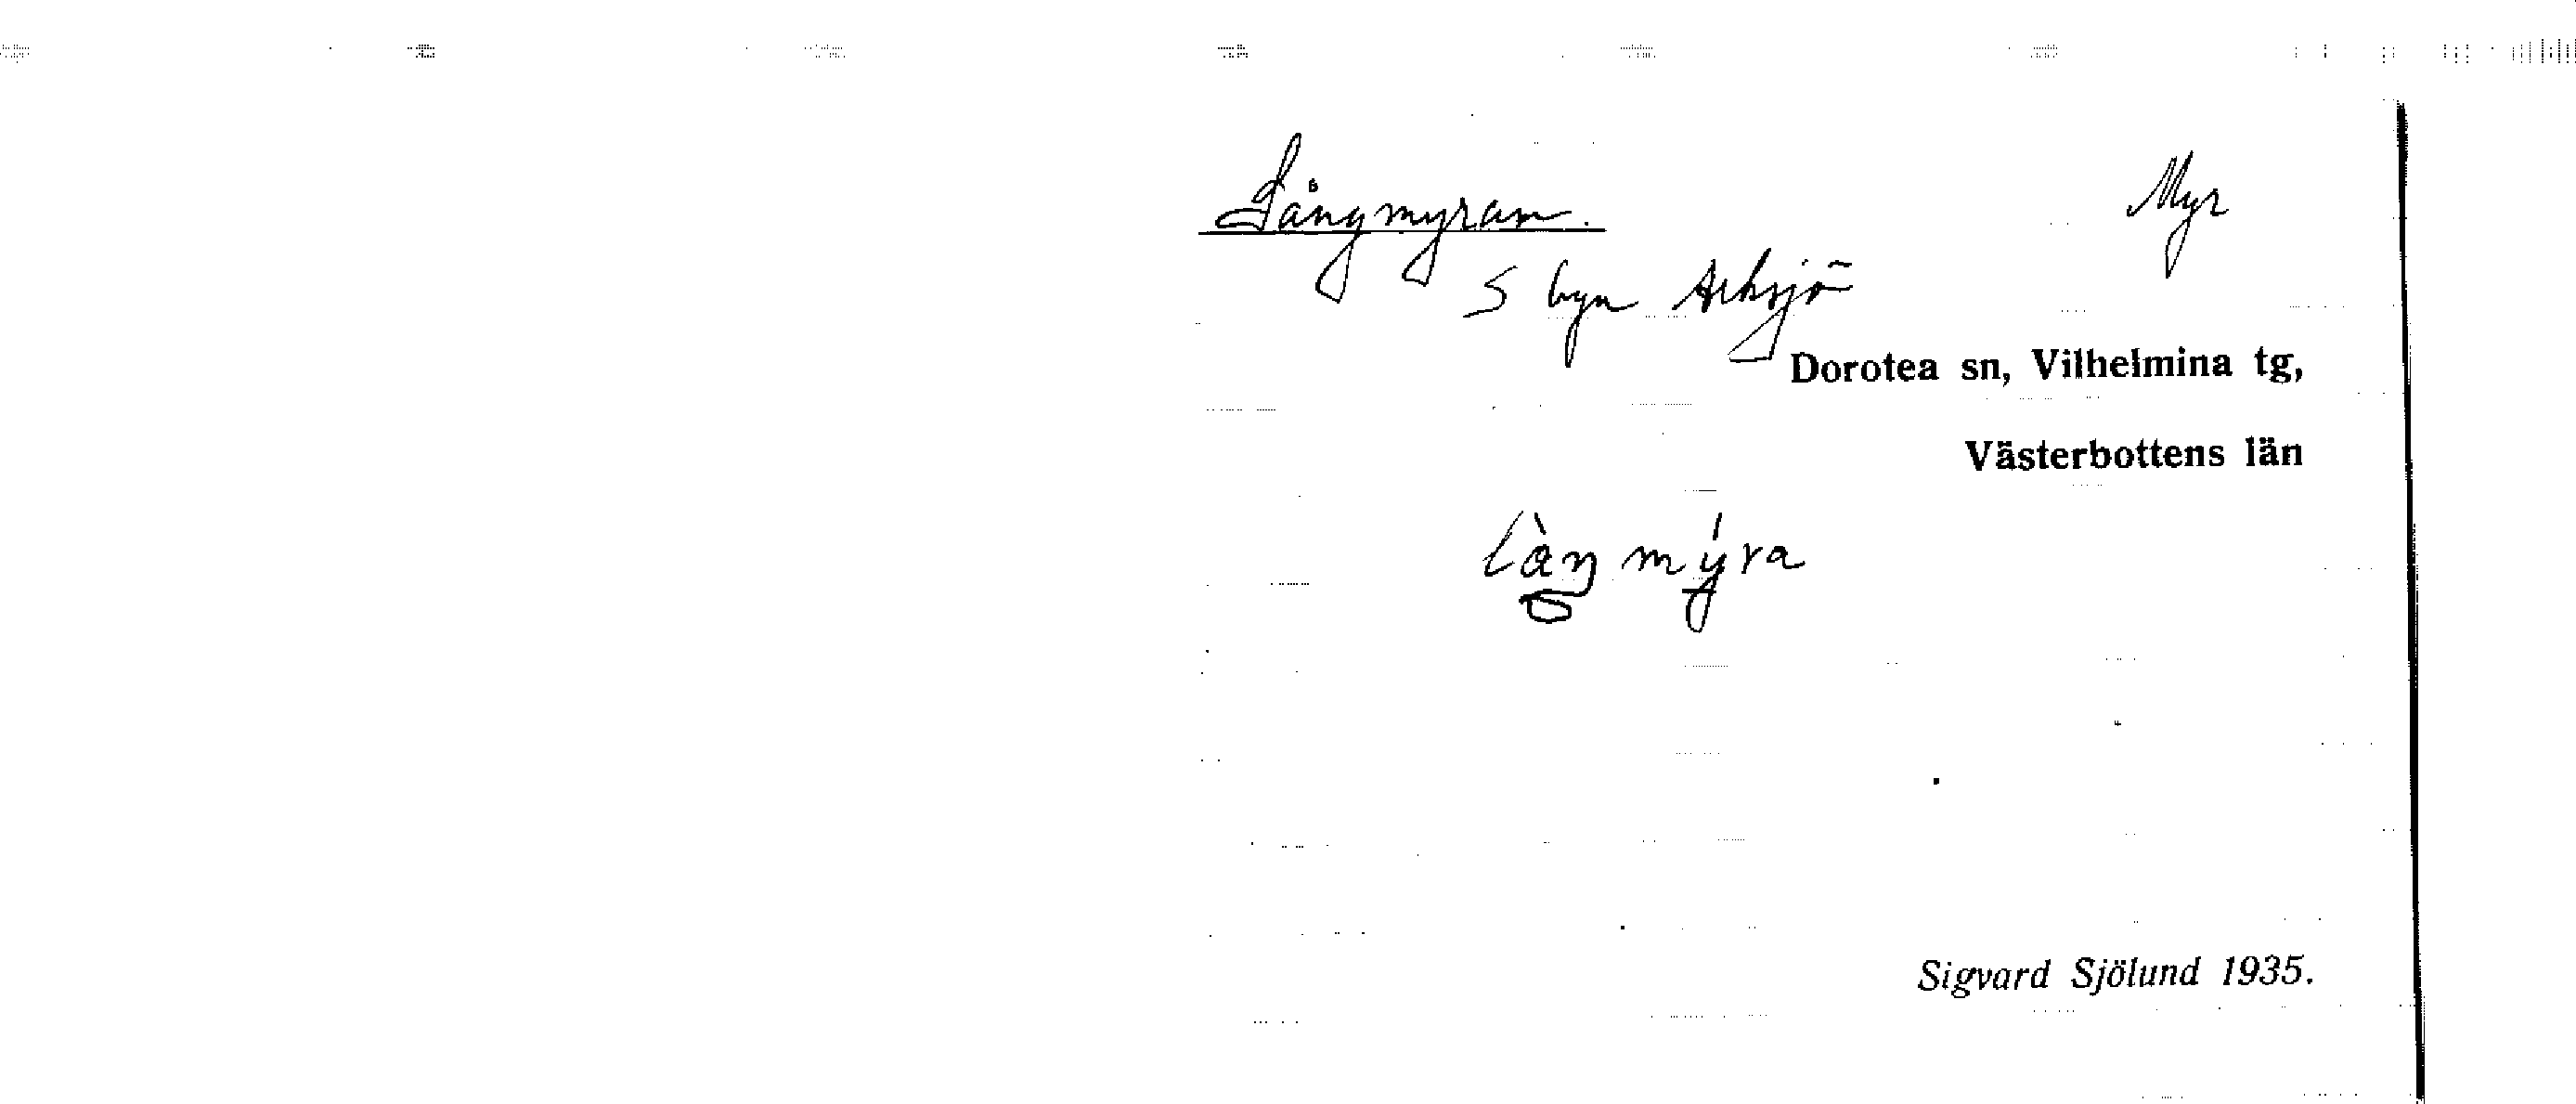 Långmyran. Myr
S byn Arksjö
Dorotea sn, Vilhelmina tg,
Västerbottens län
làŋmýra
Sigvard Sjölund 1935.